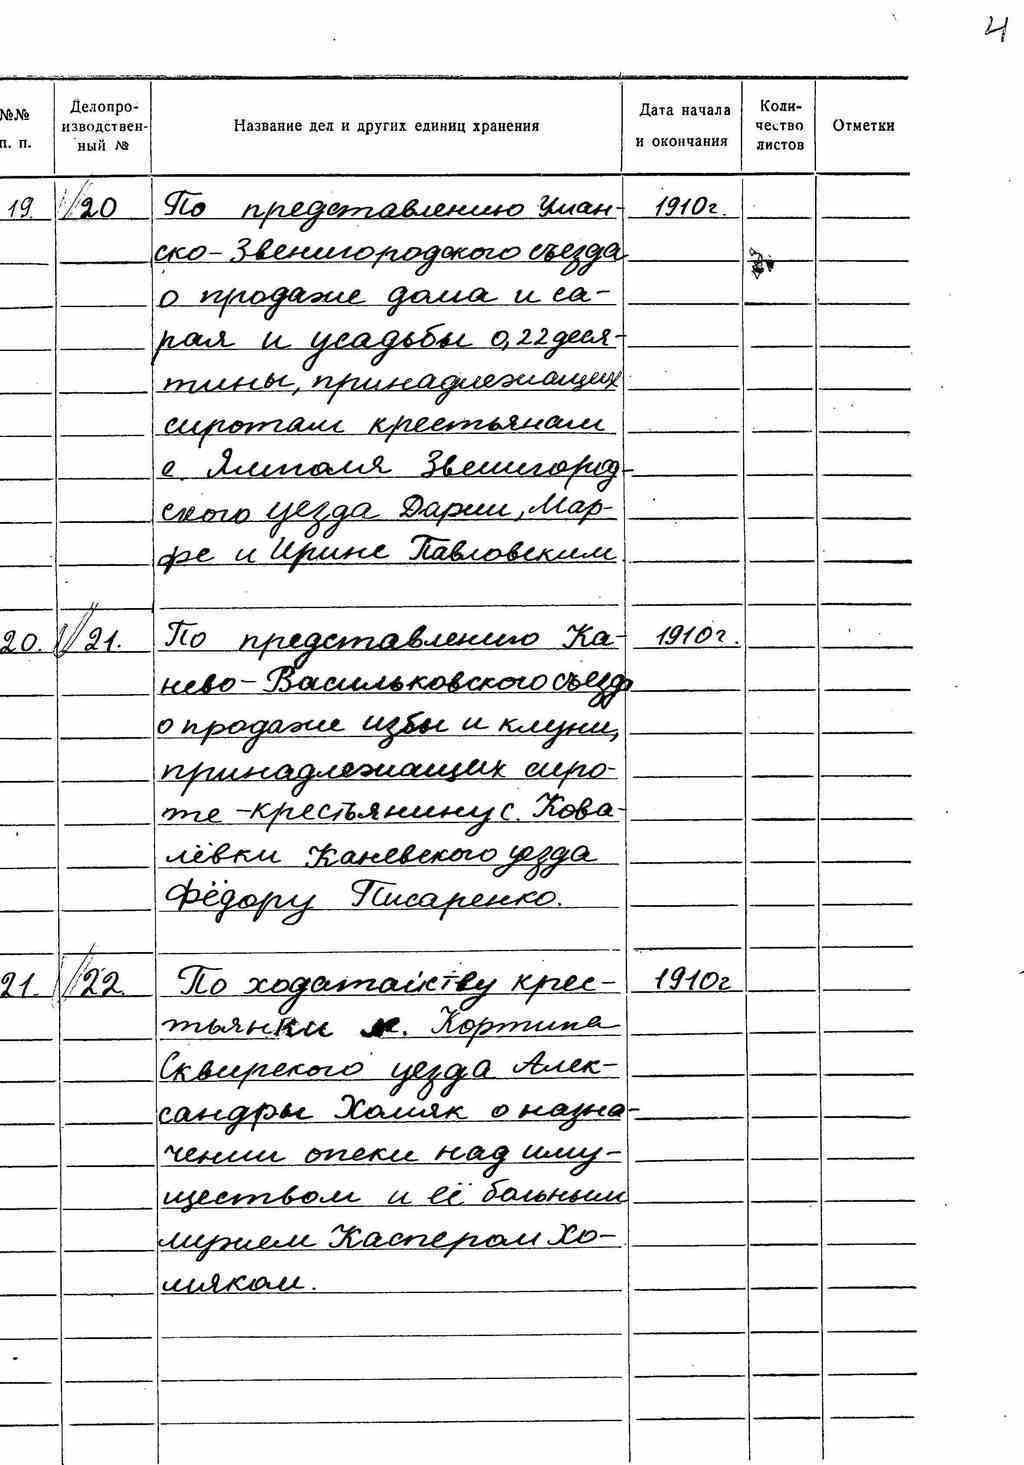 4
№№ п. п.
Делопро-
изводствен-
ный №
Название дел и других единиц хранения
Дата начала
и окончания
Коли-
чество
листов
Отметки
19. 20 По представлению Уман- 1910г.
ско-Звенигородского съезда
о продаже дома и са-
рая и усадьбы 0,22 деся-
тины, принадлежащих
сиротам крестьянам
с. Ямполя Звенигород-
ского уезда Дарии, Мар-
фе и Ирине Павловским
20. 21. По представлению Ка- 1910г.
нево-Васильковского съезда
о продаже избы и клуни,
принадлежащих сиро-
те-крестьянину с. Кова-
лёвки Каневского уезда
Фёдору Писаренко.
21. 22. По ходатайству крес- 1910г
тьянки м. Кортипа
Сквирского уезда Алек-
сандры Хомяк о назна-
чении опеки над иму-
ществом и её больным
мужем Каспером Хо-
мяком.